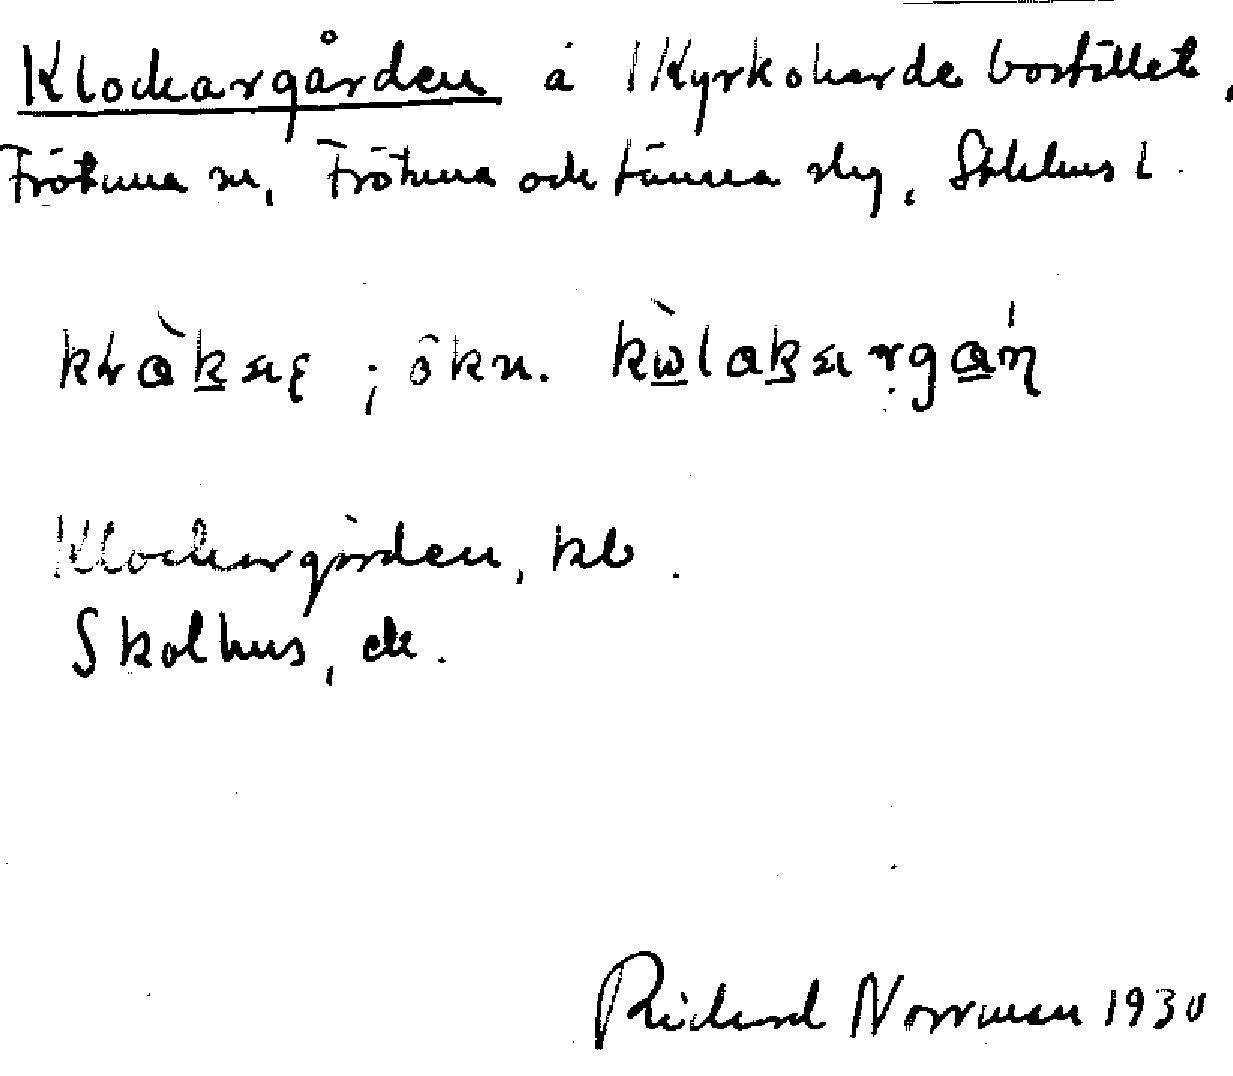 Klockargården å 1 Kyrkoherdebostället,
Frötuna sn, Frötuna och Länna skg, Sthlms l.
; ökn.
Klockargården, kb.
Skolhus, ek.
Richard Norrman 1930